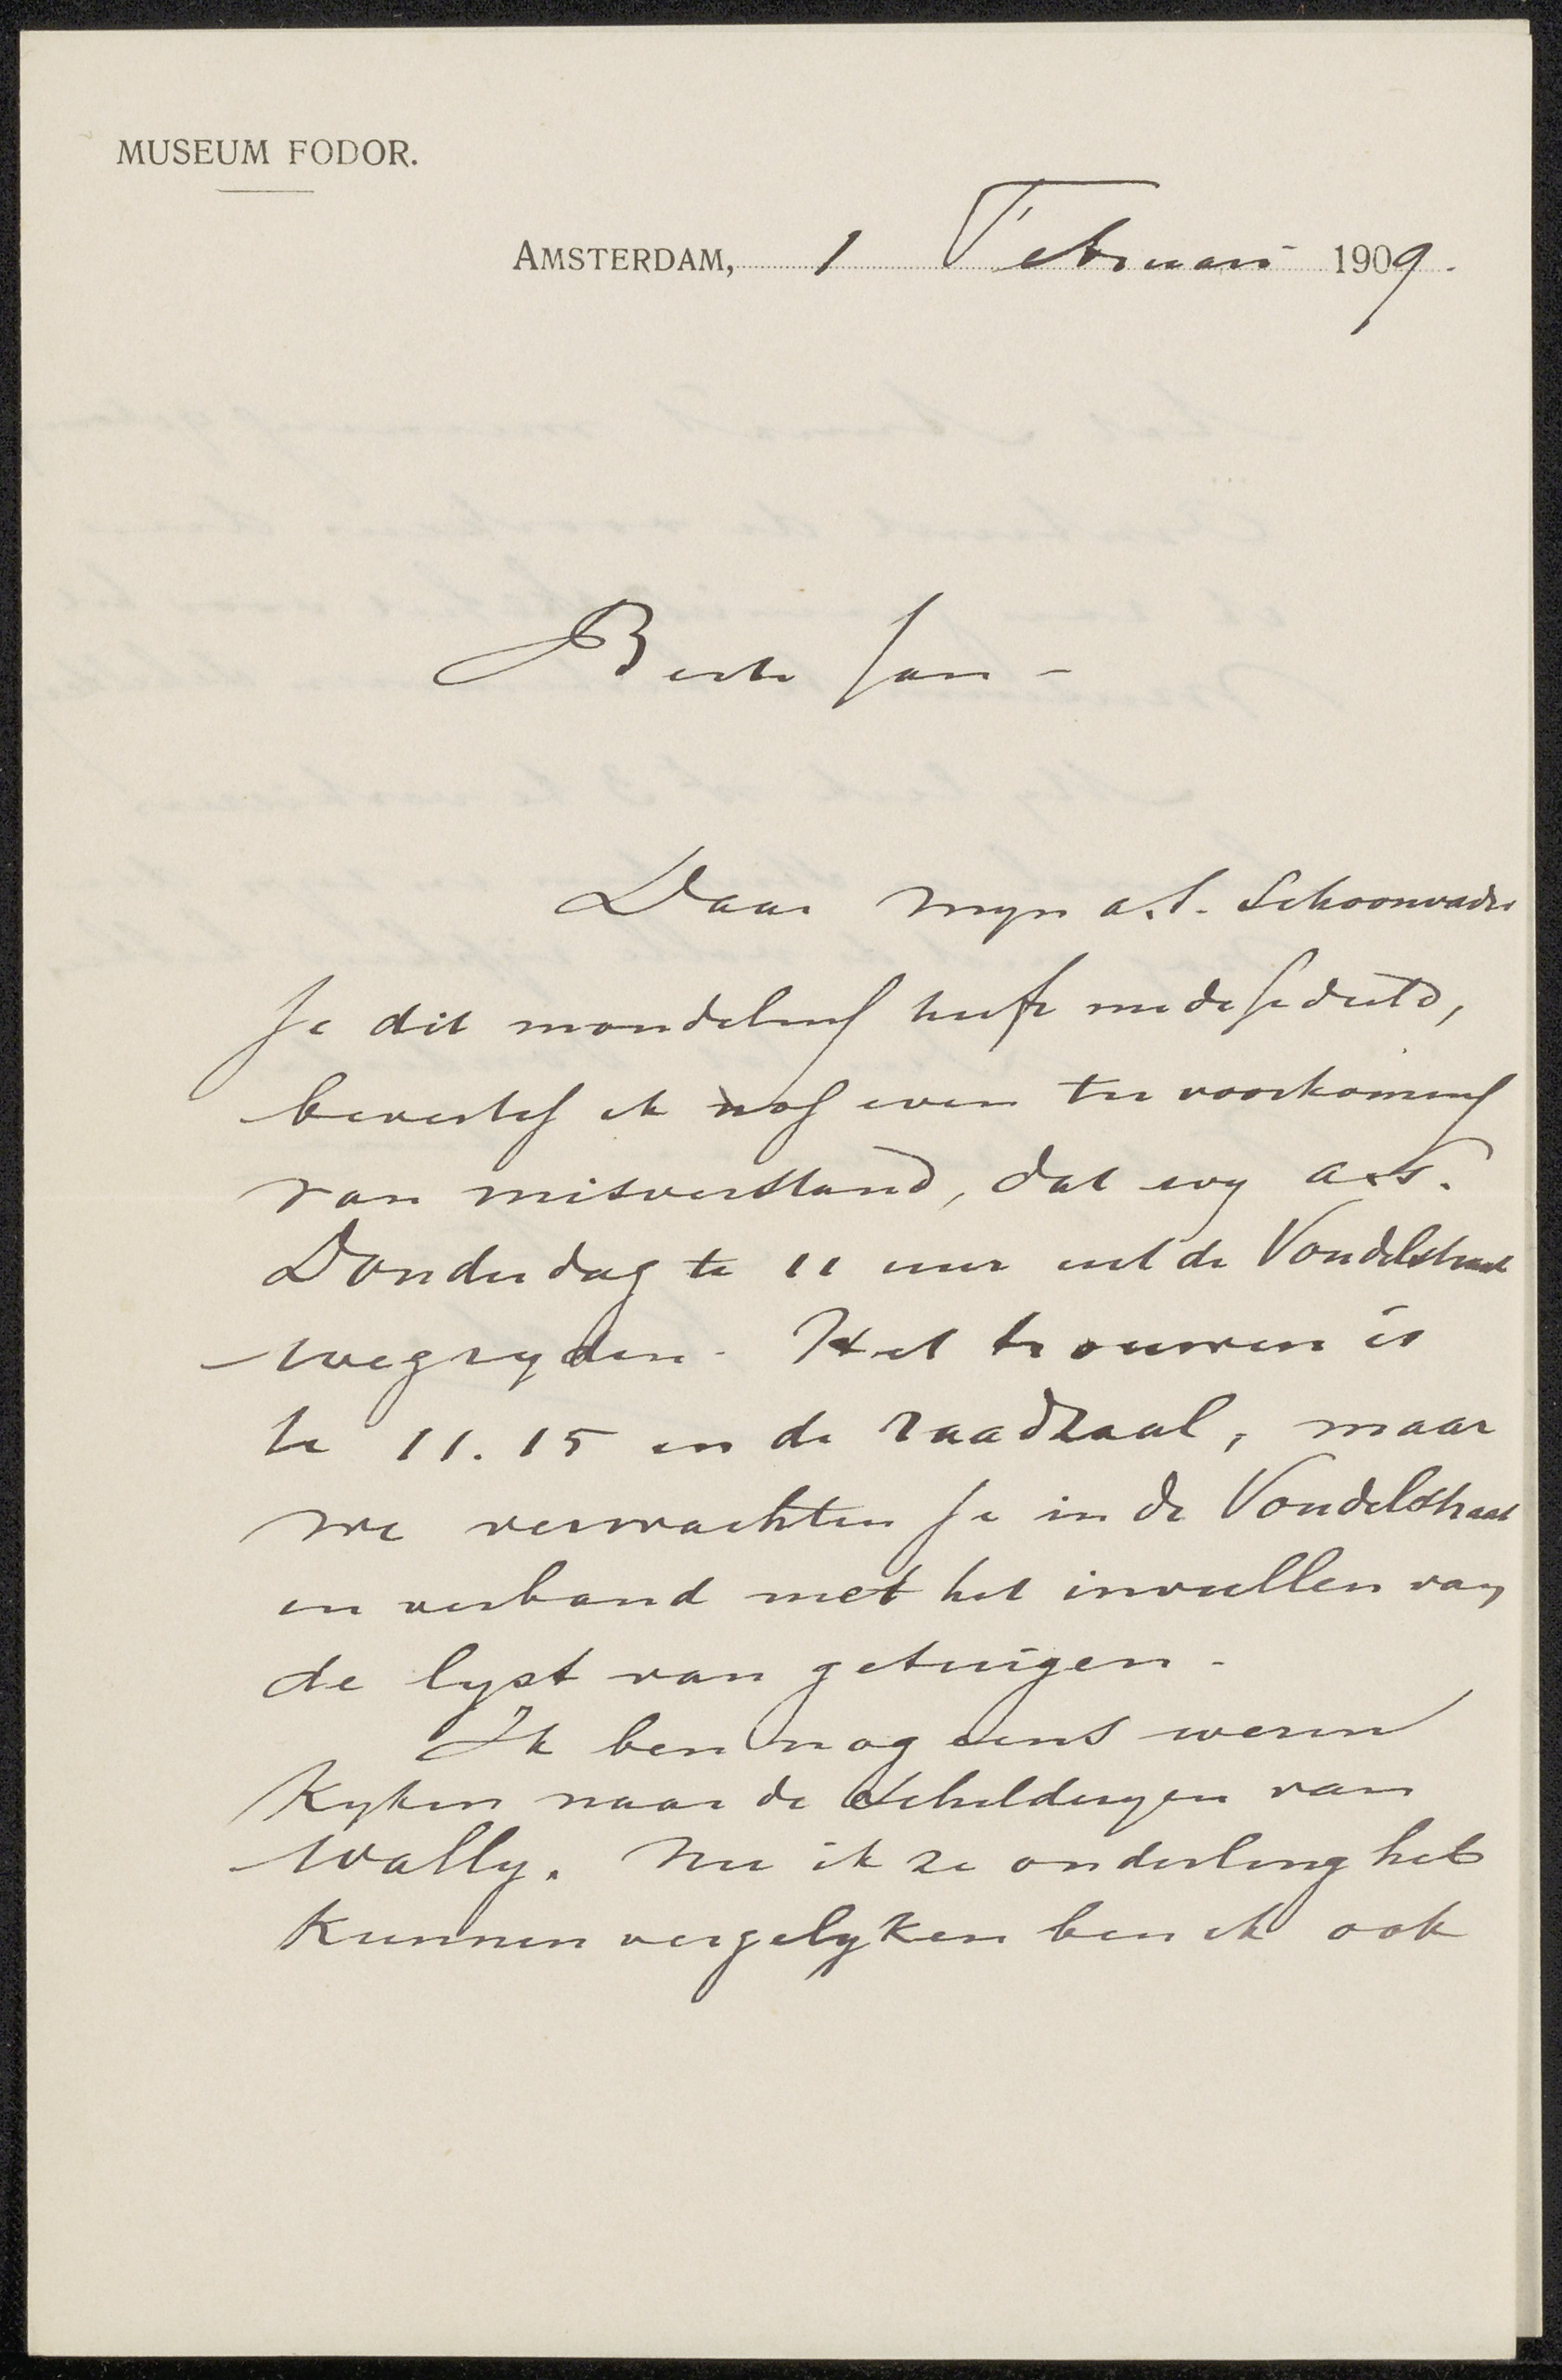 MUSEUM FODOR.
AMSTERDAM, 1 Februari 1909.
Beste Jan -
Daar mijn a.s. Schoonvader
je dit mondeling heeft medegedeeld,
bevestig ik nog even ter voorkoming
van misverstand, dat wij a.s.
Donderdag te 11 uur uit de Vondelstraat
wegrijden. Het trouwen is
te 11.15 in de raadzaal, maar
we verwachten je in de Vondelstraat
in verband met het invullen van
de lijst van getuigen.
Ik ben nog eens wezen
Kijken naar de Schilderijen van
Wally. Nu ik ze onderling heb
Kunnen vergelijken ben ik ook